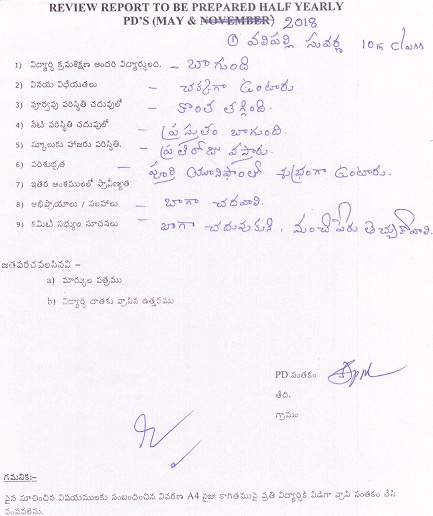 REVIEW REPORT TO BE PREPARED HALF YEARLY
PD'S (MAY & NOVEMBER) 2018
① వలిపల్లి సువర్ణ 10th Class
1) విద్యార్థి క్రమశిక్షణ అందరి విద్యార్థులది. – బాగుంది
2) వినయ విధేయతలు – చక్కగా ఉంటారు
3) పూర్వపు పరిస్థితి చదువులో – కొంత తగ్గింది.
4) నేటి పరిస్థితి చదువులో – ప్రస్తుతం బాగుంది.
5) స్కూలుకు హాజరు పరిస్థితి. – ప్రతిరోజు వస్తారు.
6) పరిశుభ్రత – పూర్తి యూనిఫాంలో శుభ్రంగా ఉంటారు.
7) ఇతర అంశములలో ప్రావీణ్యత
8) అభిప్రాయాలు / సలహాలు – బాగా చదవాలి.
9) కమిటి సభ్యుల సూచనలు – బాగా చదువుకుని, మంచి పేరు తెచ్చుకోవాలి.
జతపరచవలసినవి –
a) మార్కుల పత్రము
b) విద్యార్థి దాతకు వ్రాసిన ఉత్తరము
PD సంతకం
తేది.
గ్రామం
గమనిక:–
పైన సూచించిన విషయములకు సంబంధించిన వివరణ A4 సైజు కాగితముపై ప్రతి విద్యార్థికి విడిగా వ్రాసి సంతకం చేసి
పంపవలెను.